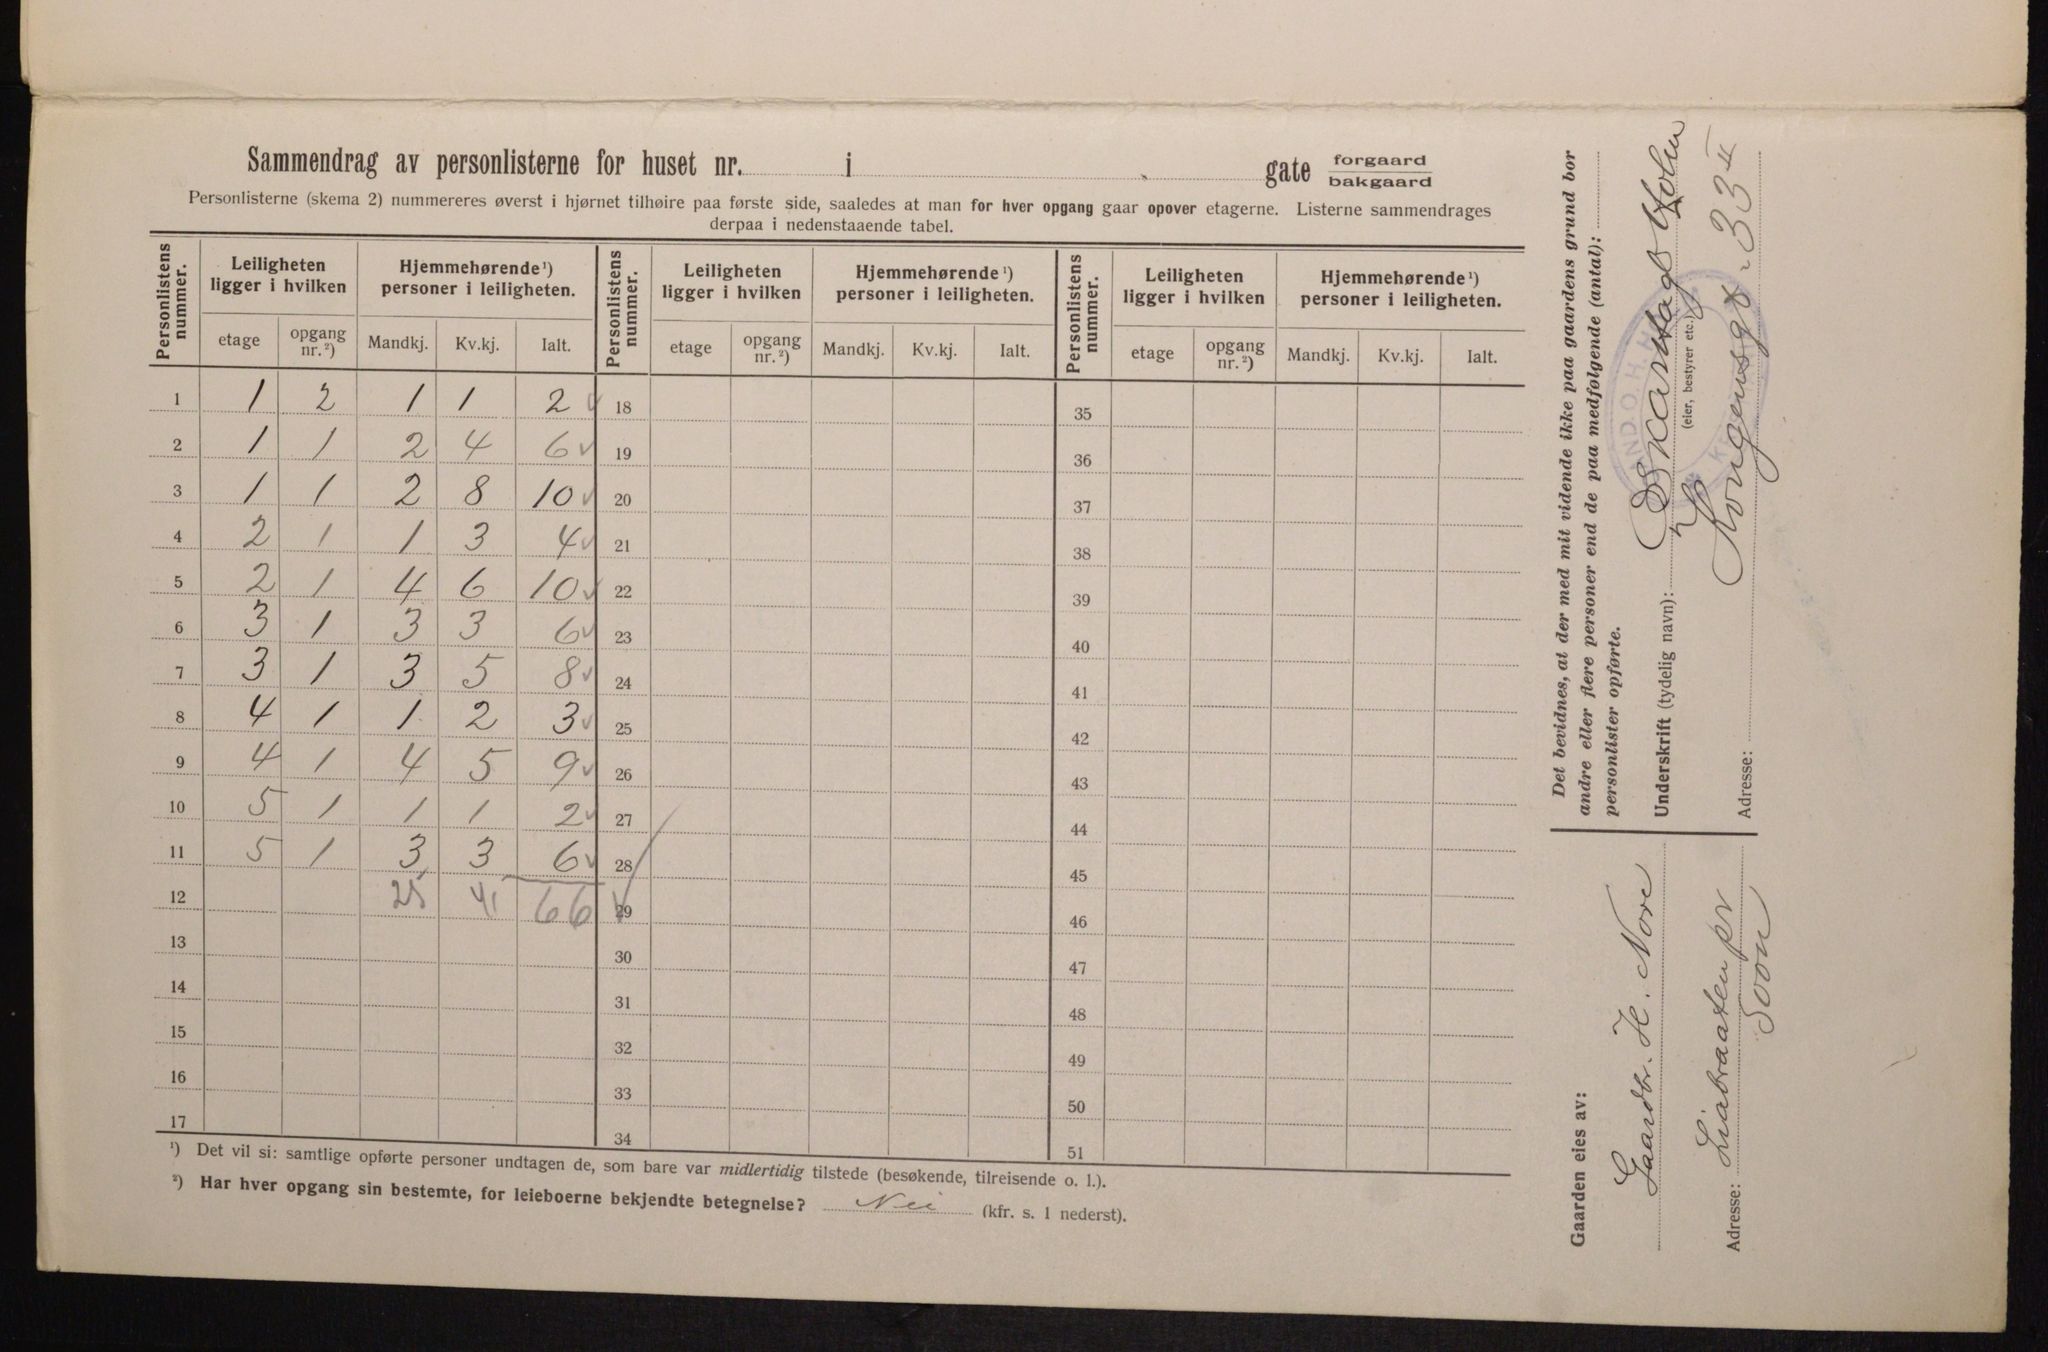 Sammendrag av personlisterne for huset nr. i gate forgaard
bakgaard
Personlisterne (skema 2) nummereres øverst i hjørnet tilhøire paa første side, saaledes at man for hver opgang gaar opover etagerne. Listerne sammendrages
derpaa i nedenstaaende tabel.
Personlistens nummer. Leiligheten ligger i hvilken Hjemmehørende¹) personer i leiligheten. Personlistens nummer. Leiligheten ligger i hvilken Hjemmehørende¹) personer i leiligheten. Personlistens nummer. Leiligheten ligger i hvilken Hjemmehørende¹) personer i leiligheten.
etage opgang nr.²) Mandkj. Kv.kj. Ialt. etage opgang nr.²) Mandkj. Kv.kj. Ialt. etage opgang nr.²) Mandkj. Kv.kj. Ialt.
1 1 2 1 1 2 18 35
2 1 1 2 4 6 19 36
3 1 1 2 8 10 20 37
4 2 1 1 3 4 21 38
5 2 1 4 6 10 22 39
6 3 1 3 3 6 23 40
7 3 1 3 5 8 24 41
8 4 1 1 2 3 25 42
9 4 1 4 5 9 26 43
10 5 1 1 1 2 27 44
11 5 1 3 3 6 28 45
12 25 41 66 29 46
13 30 47
14 31 48
15 32 49
16 33 50
17 34 51
¹) Det vil si: samtlige opførte personer undtagen de, som bare var midlertidig tilstede (besøkende, tilreisende o. l.).
²) Har hver opgang sin bestemte, for leieboerne bekjendte betegnelse? Nei (kfr. s. 1 nederst).
Det bevidnes, at der med mit vidende ikke paa gaardens grund bor
andre eller flere personer end de paa medfølgende (antal):
personlister opførte.
Underskrift (tydelig navn): Holm
(eier, bestyrer etc.)
Adresse: Kongensgt. 33 II
Gaarden eies av:
Gaardbr. H. Nore
Adresse: Liabraaten pr
Soon